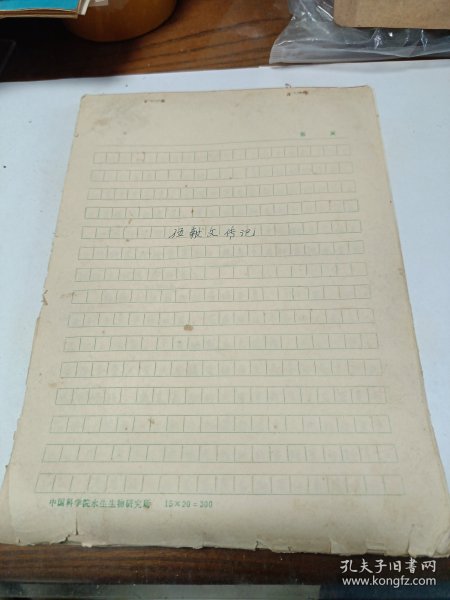 第 页
伍献文传记
中国科学院水生生物研究所 15×20=300
孔夫子旧书网
www.kongfz.com